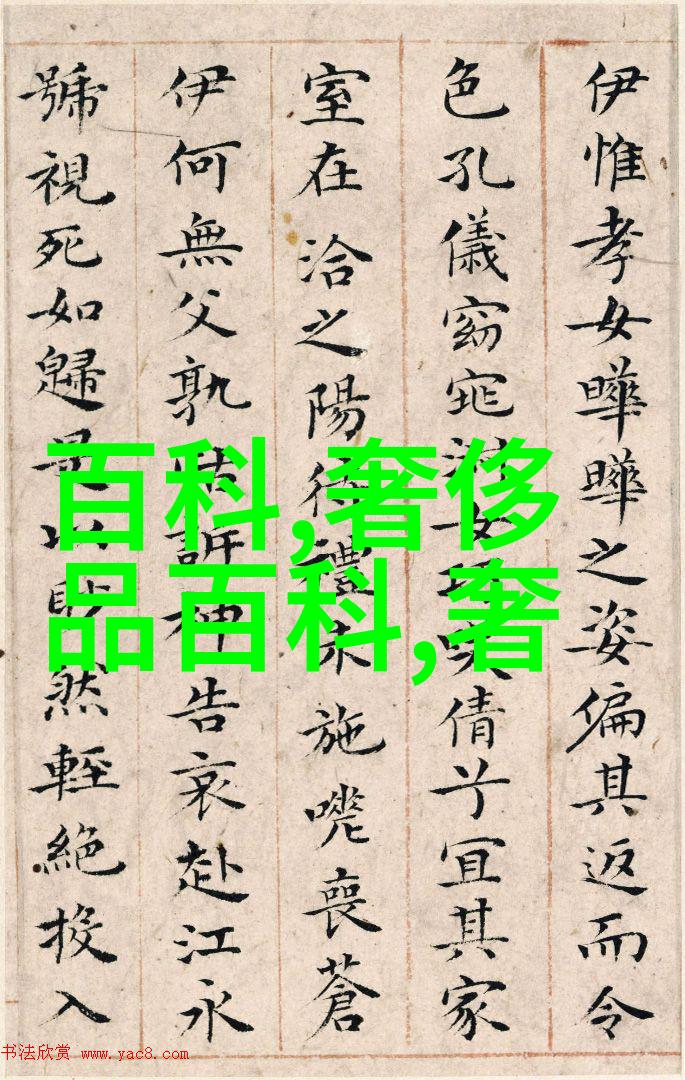 伊惟孝女曄曄之姿偏其返而令
色孔儀窈窕淑女巧笑倩兮宜其家
室在洽之陽待禮未施嗟喪蒼
伊何無父孰怙訴神告哀赴江永
號視死如歸是以眇然輕絕投入
百科,奢侈
品百科,奢
书法欣赏 www.yac8.com